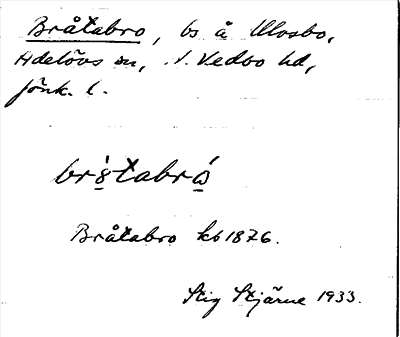 Bråtabro, bs å Ulosbo,
Adelövs sn, N. Vedbo hd,
Jönk. l.
Bråtabro kb 1876.
Stig Stjärne 1933.